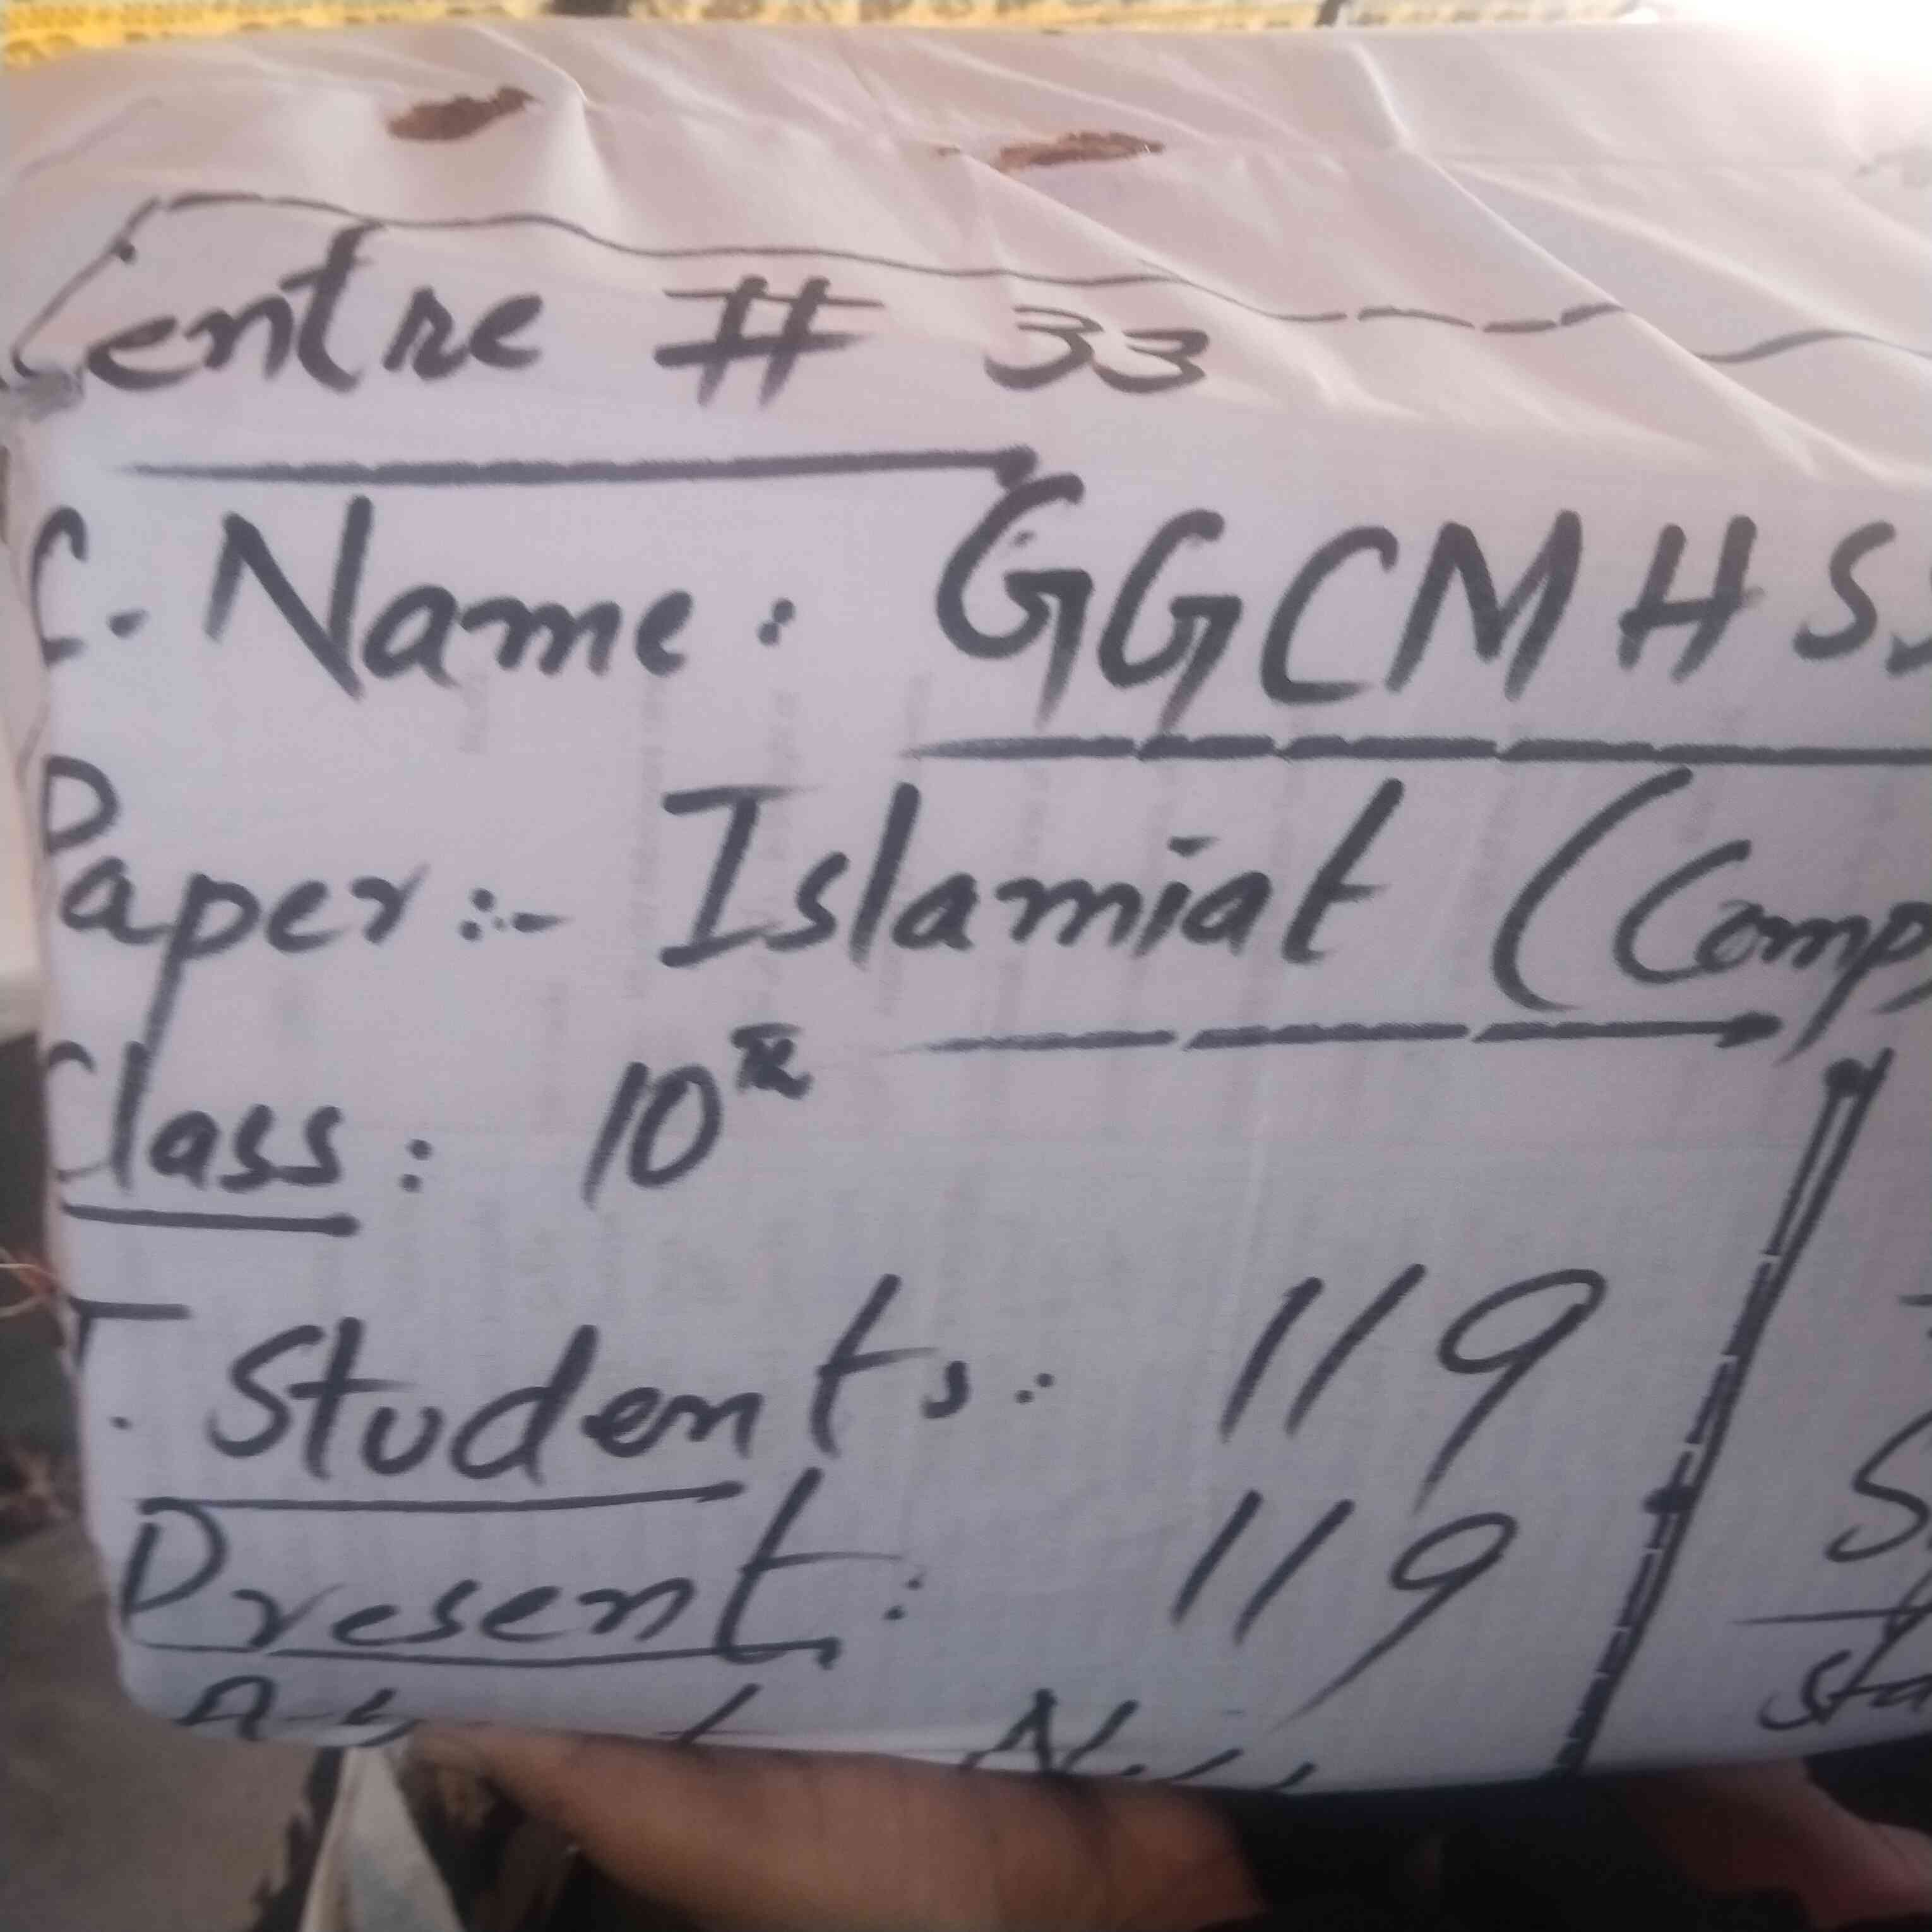 Centre # 33
C. Name: GGCMHSS
Paper:- Islamiat (Comp
Class: 10th
T. Students: 119
Present: 119